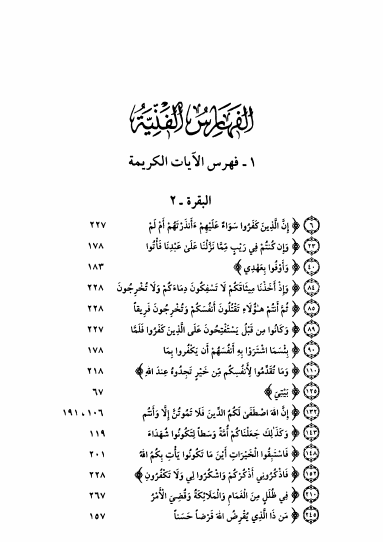 الفهارس الفنية
١ ـ فهرس الآيات الكريمة
البقرة ـ ٢
٦ ﴿ إِنَّ الَّذِينَ كَفَرُوا سَوَاءٌ عَلَيْهِمْ ءَأَنذَرْتَهُمْ أَمْ لَمْ ٢٢٧
٢٣ ﴿ وَإِن كُنتُمْ فِي رَيْبٍ مِّمَّا نَزَّلْنَا عَلَىٰ عَبْدِنَا فَأْتُوا ١٧٨
٤٠ ﴿ وَأَوْفُوا بِعَهْدِي ﴾ ١٨٣
٨٤ ﴿ وَإِذْ أَخَذْنَا مِيثَاقَكُمْ لَا تَسْفِكُونَ دِمَاءَكُمْ وَلَا تُخْرِجُونَ ٢٢٨
٨٥ ﴿ ثُمَّ أَنتُمْ هَـٰؤُلَاءِ تَقْتُلُونَ أَنفُسَكُمْ وَتُخْرِجُونَ فَرِيقاً ٢٢٨
٨٩ ﴿ وَكَانُوا مِن قَبْلُ يَسْتَفْتِحُونَ عَلَى الَّذِينَ كَفَرُوا فَلَمَّا ٢٢٧
٩٠ ﴿ بِئْسَمَا اشْتَرَوْا بِهِ أَنفُسَهُمْ أَن يَكْفُرُوا بِمَا ١٧٨
١١٠ ﴿ وَمَا تُقَدِّمُوا لِأَنفُسِكُم مِّنْ خَيْرٍ تَجِدُوهُ عِندَ اللهِ ﴾ ٢١٨
١٢٥ ﴿ بَيْتِيَ ﴾ ٦٧
١٣٢ ﴿ إِنَّ اللهَ اصْطَفَىٰ لَكُمُ الدِّينَ فَلَا تَمُوتُنَّ إِلَّا وَأَنتُم ١٠٦ ، ١٩١
١٤٣ ﴿ وَكَذَٰلِكَ جَعَلْنَاكُمْ أُمَّةً وَسَطاً لِتَكُونُوا شُهَدَاءَ ١١٩
١٤٨ ﴿ فَاسْتَبِقُوا الْخَيْرَاتِ أَيْنَ مَا تَكُونُوا يَأْتِ بِكُمُ اللهُ ٢٠١
١٥٢ ﴿ فَاذْكُرُونِي أَذْكُرْكُمْ وَاشْكُرُوا لِي وَلَا تَكْفُرُونِ ﴾ ٢٢٨
٢١٠ ﴿ فِي ظُلَلٍ مِنَ الْغَمَامِ وَالْمَلَائِكَةُ وَقُضِيَ الْأَمْرُ ٢٦٧
٢٤٥ ﴿ مَن ذَا الَّذِي يُقْرِضُ اللهَ قَرْضاً حَسَناً ١٥٧